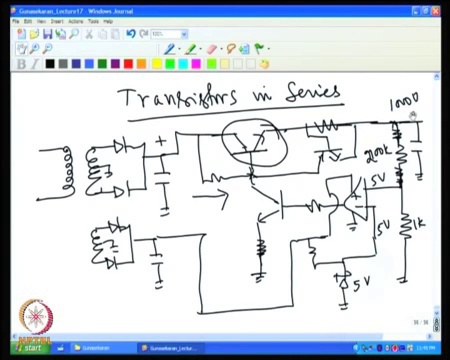 Gunasekaran_Lecture17 - Windows Journal
File Edit View Insert Actions Tools Help
100%
B I
Transistors in Series
1000
200k
5V
5V
1k
5V
NPTEL
start
Gunasekaran
Gunasekaran_Lectur...